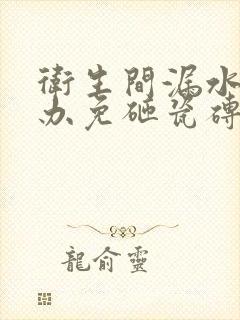 衛生間漏水
办免砸瓷磚
龍俞靈